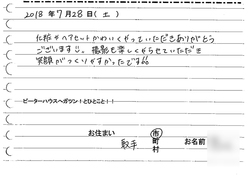 2018年7月28日(土)
化粧やヘアセットかわいくやっていただきありがとう
ございます😊。撮影も楽しくやらせていただき
笑顔がつくりやすかったです!!
ピーターハウスへガツン!とひとこと!!
お住まい
取手 市町村 お名前